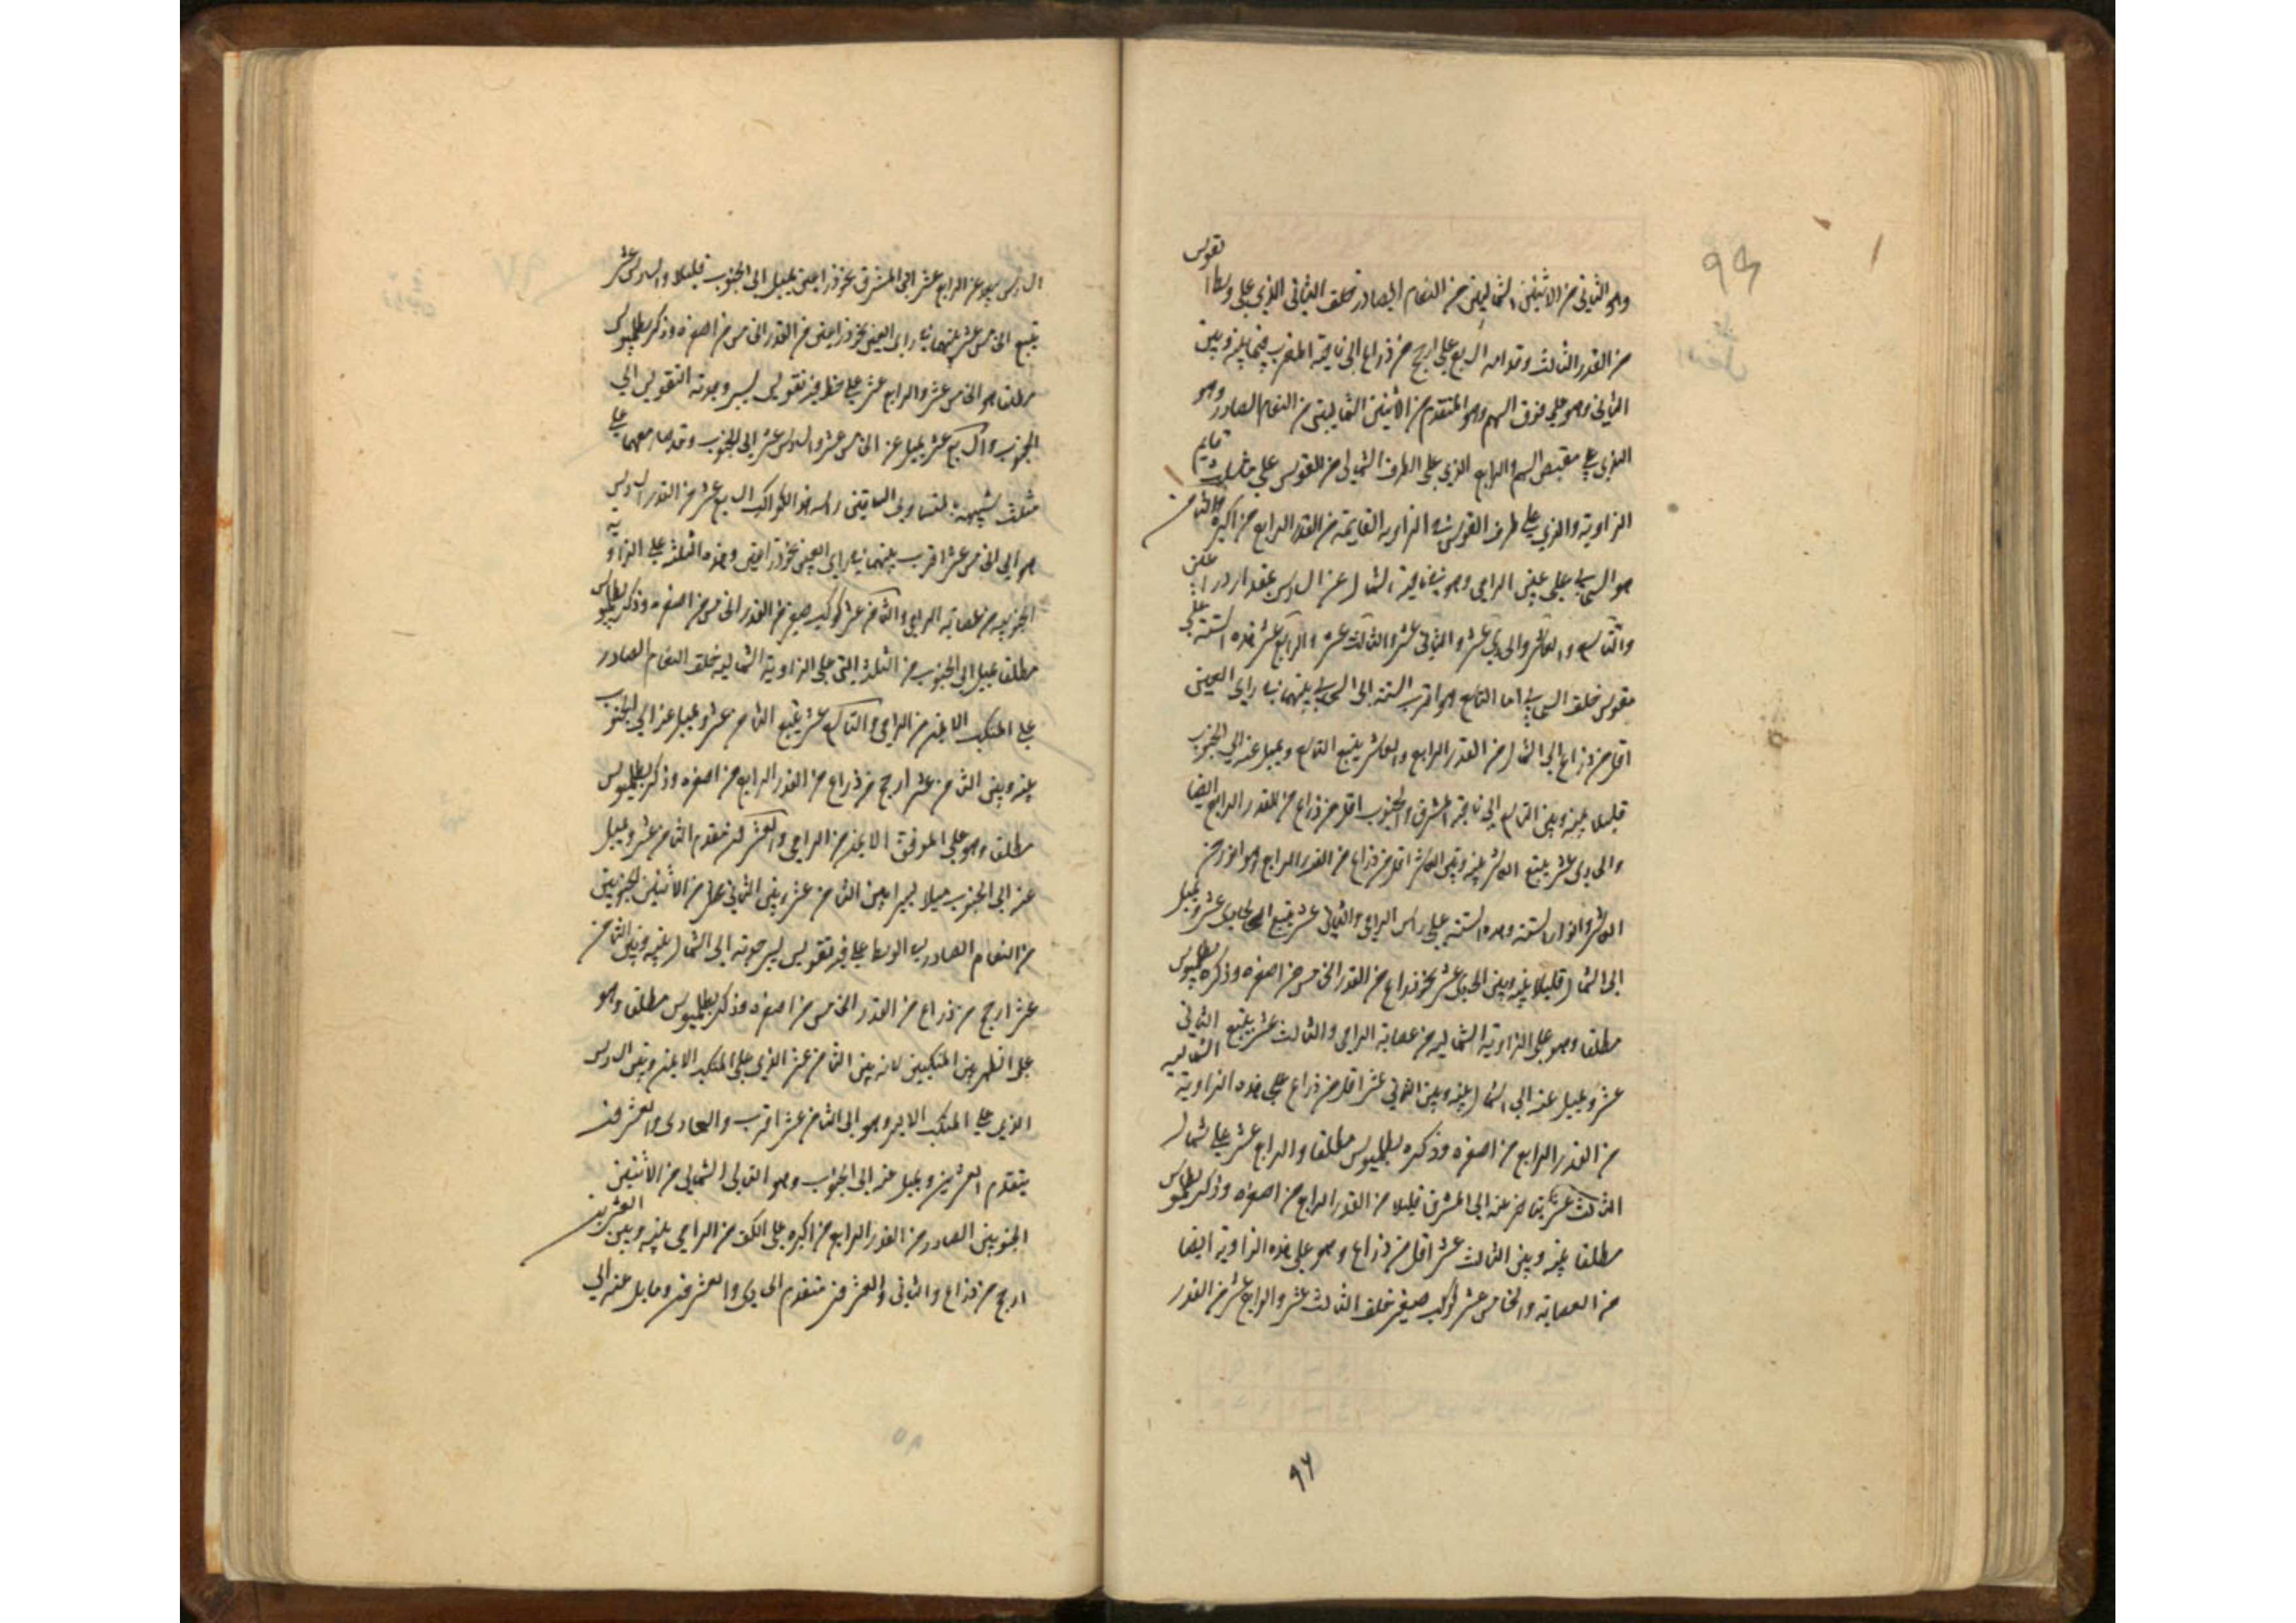 تقويس
وهو الثاني من الاثنين الشماليين من النعام الصادر خلف الثاني الذي على وسط ا
من القدر الثالث وقدامه السابع على ارجح من ذراع الى ناحية المغرب فيما بينه وبين
الثاني وهو على فوق السهم وهو المتقدم من الاثنين الشماليين من النعام الصادر وهو
الذي على مقبض السهم والرابع الذي على الطرف الشمالي من القوس على مثلث قايم
الزاوية والذي على طرف القوس هو الزاوية القايمة من القدر الرابع من اكبره والثامن
هو السحابي على عين الرامي وهو في ناحية الشمال عن السادس بمقدار
والتاسع والعاشر والحادي عشر والثاني عشر والثالث عشر والرابع عشر هذه الستة على
مقوس خلف السحابي اما التاسع هو اقرب الستة الى السحابي بينهما في راى العين
اقل من ذراع الى الشمال من القدر الرابع والعاشر يتبع التاسع ويميل عنه الى الجنوب
قليلا بينه وبين التاسع الى ناحية المشرق والجنوب اقل من ذراع من القدر الرابع ايضا
والحادي عشر يتبع العاشر بينه وبين العاشر اقل من ذراع من القدر الرابع وهو انور من
العاشر وانور الستة وهذه الستة على راس الرامي والثاني عشر يتبع الحادي عشر ويميل
الى الشمال قليلا بينه وبين الحادي عشر نحو ذراع من القدر الخامس من اصغره وذكره بطلميوس
مطلقا وهو على الزاوية الشمالية من عصابة الرامي والثالث عشر يتبع الثاني
عشر ويميل عنه الى الشمال بينه وبين الثاني عشر اقل من ذراع على هذه الزاوية الشمالية
من القدر الرابع من اصغره وذكره بطلميوس مطلقا والرابع عشر على شمال
الثالث عشر يتاخر عنه الى المشرق قليلا من القدر الرابع من اصغره وذكره بطلميوس
مطلقا بينه وبين الثالث عشر اقل من ذراع وهو على هذه الزاوية ايضا
من العصابة والخامس عشر كوكب صغير خلف الثالث عشر والرابع عشر من القدر
٩٦
السادس يبعد عن الرابع عشر الى المشرق نحو ذراعين يميل الى الجنوب قليلا والسادس عشر
يتبع الخامس عشر بينهما في راى العين نحو ذراعين من القدر الخامس من اصغره وذكر بطلميوس
مطلقا هو الخامس عشر والرابع عشر على خط فيه تقويس يسير وحدبة التقويس الى
الجنوب والسابع عشر يميل عن الخامس عشر والسادس عشر الى الجنوب وقد صار معهما على
مثلث شبيه بمتساوي الساقين راسه هذا الكوكب السابع عشر من القدر السادس
هو الى الخامس عشر اقرب بينهما في راى العين نحو ذراعين وهذه الثلثة على الزاوية
الجنوبية من عصابة الرامي والثامن عشر كوكب صغير من القدر الخامس من اصغره وذكر بطلميوس
مطلقا يميل الى الجنوب من الثلثة التي على الزاوية الشمالية خلف النعام الصادر
على المنكب الايمن من الرامي والتاسع عشر يتبع الثامن عشر ويميل عنه الى الجنوب
بينه وبين الثامن عشر ارجح من ذراع من القدر الرابع من اصغره وذكر بطلميوس
مطلقا وهو على المرفق الايمن من الرامي والعشرون متقدم الثامن عشر ويميل
عنه الى الجنوب ميلا يسيرا بين الثامن عشر وبين الثاني من الاثنين الجنوبيين
من النعام الصادر في الوسط على فيه تقويس يسير حدبته الى الشمال بينه وبين الثامن
عشر ارجح من ذراع من القدر الخامس من اصغره وذكر بطلميوس مطلقا وهو
على الظهر بين المنكبين لانه بين الثامن عشر الذي على المنكب الايمن وبين السادس
الذي على المنكب الايسر وهو الى الثامن عشر اقرب والحادي والعشرون
يتقدم العشرين ويميل عنه الى الجنوب وهو التالي الشمالي من الاثنين
الجنوبيين الصادر من القدر الرابع من اكبره على الكف من الرامي بينه وبين العشرين
ارجح من ذراع والثاني والعشرون متقدم الحادي والعشرون ومايل عنه الى